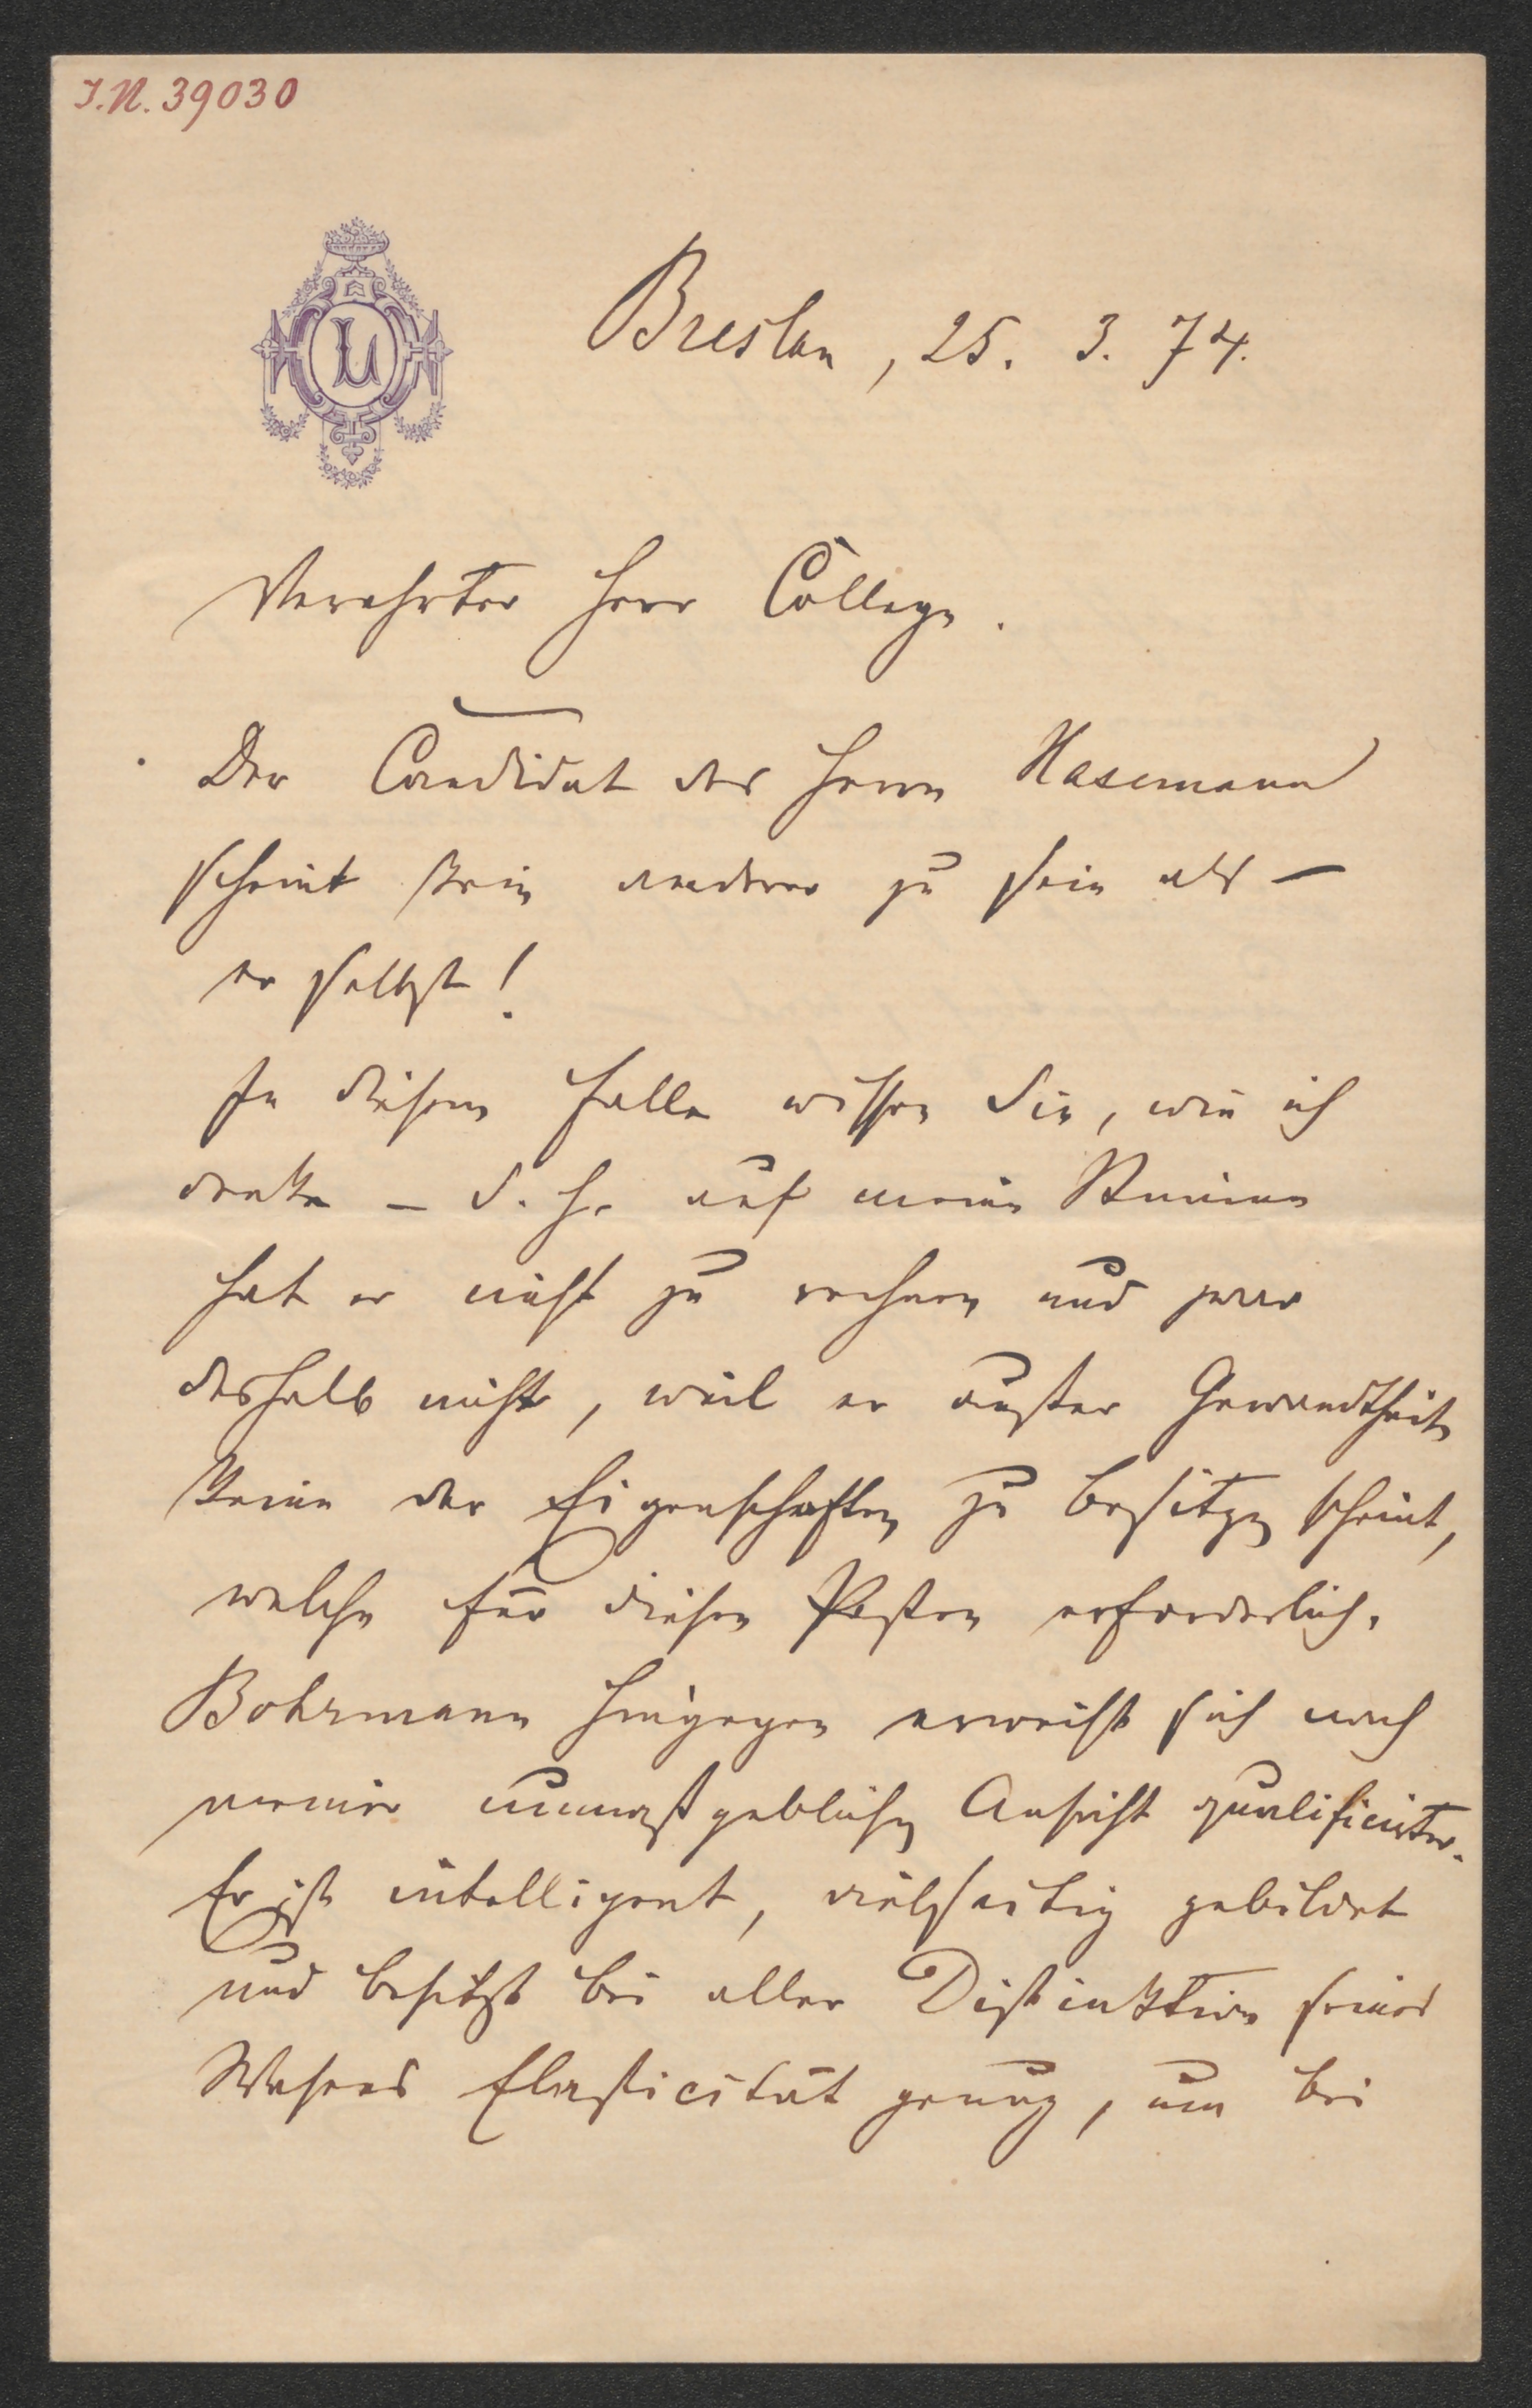 I.N. 39030
L
Breslau, 25. 3. 74.
Verehrter Herr College.
Der Candidat des Herrn Hasemann
scheint kein anderer zu sein als –
er selbst!
In diesem Falle wissen Sie, wie ich
denke – d. h. auf meine Stimme
hat er nicht zu rechnen und zwar
deshalb nicht, weil er außer Gewandtheit
keine der Eigenschaften zu besitzen scheint,
welche für diesen Posten erforderlich.
Bohrmann hingegen erweist sich nach
meiner unmaßgeblichen Ansicht qualificirter.
Er ist intelligent, vielseitig gebildet
und besitzt bei aller Distinktion seines
Wesens Elasticität genug, um bei